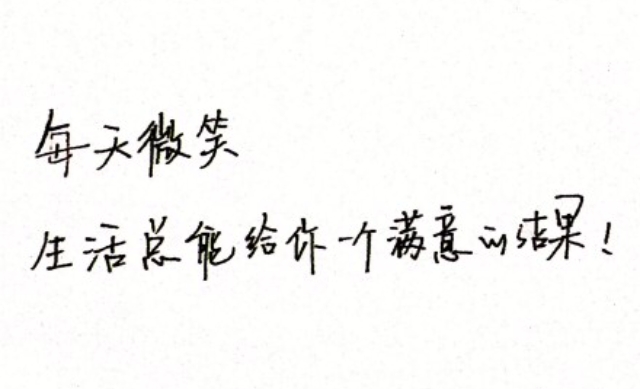 每天微笑
生活总能给你一个满意的结果！